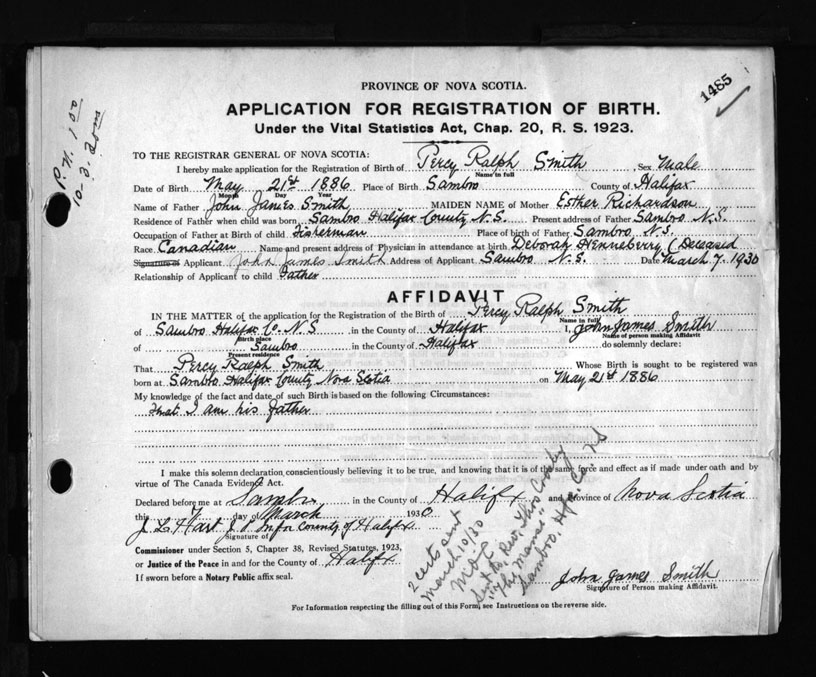 1485
P.N. 1.00
10-3-30 m
PROVINCE OF NOVA SCOTIA.
APPLICATION FOR REGISTRATION OF BIRTH.
Under the Vital Statistics Act, Chap. 20, R. S. 1923.
TO THE REGISTRAR GENERAL OF NOVA SCOTIA:
I hereby make application for the Registration of Birth of Percy Ralph Smith Sex Male
Name in full
Date of Birth May 21st 1886 Place of Birth Sambro County of Halifax
Month Day Year
Name of Father John James Smith MAIDEN NAME of Mother Esther Richardson
Residence of Father when child was born Sambro Halifax County N.S. Present address of Father Sambro N.S.
Occupation of Father at Birth of child Fisherman Place of birth of Father Sambro N.S.
Race Canadian Name and present address of Physician in attendance at birth Deborah Henneberry (Deceased
Signature of Applicant John James Smith Address of Applicant Sambro N.S. Date March 7, 1930
Relationship of Applicant to child Father
AFFIDAVIT
IN THE MATTER of the application for the Registration of the Birth of Percy Ralph Smith
Name in full
of Sambro Halifax Co. N.S in the County of Halifax I, John James Smith
Birth place Name of person making Affidavit
of Sambro in the County of Halifax do solemnly declare:
Present residence
That Percy Ralph Smith Whose Birth is sought to be registered was
born at Sambro Halifax County Nova Scotia on May 21st 1886
My knowledge of the fact and date of such Birth is based on the following Circumstances:
That I am his father
I make this solemn declaration conscientiously believing it to be true, and knowing that it is of the same force and effect as if made under oath and by
virtue of The Canada Evidence Act.
Declared before me at Sambro in the County of Halifx and Province of Nova Scotia
this 7 day of March 1930
J. L. Hart J.P. In for County of Halifax
Signature of
Commissioner under Section 5, Chapter 38, Revised Statutes, 1923,
or Justice of the Peace in and for the County of Halifx
If sworn before a Notary Public affix seal.
2 certs sent
March 10/30
Sent to Rev. Thos Crosby
"The Manse"
Sambro, Hfx Co NS
John James Smith
Signature of Person making Affidavit.
For Information respecting the filling out of this Form, see Instructions on the reverse side.